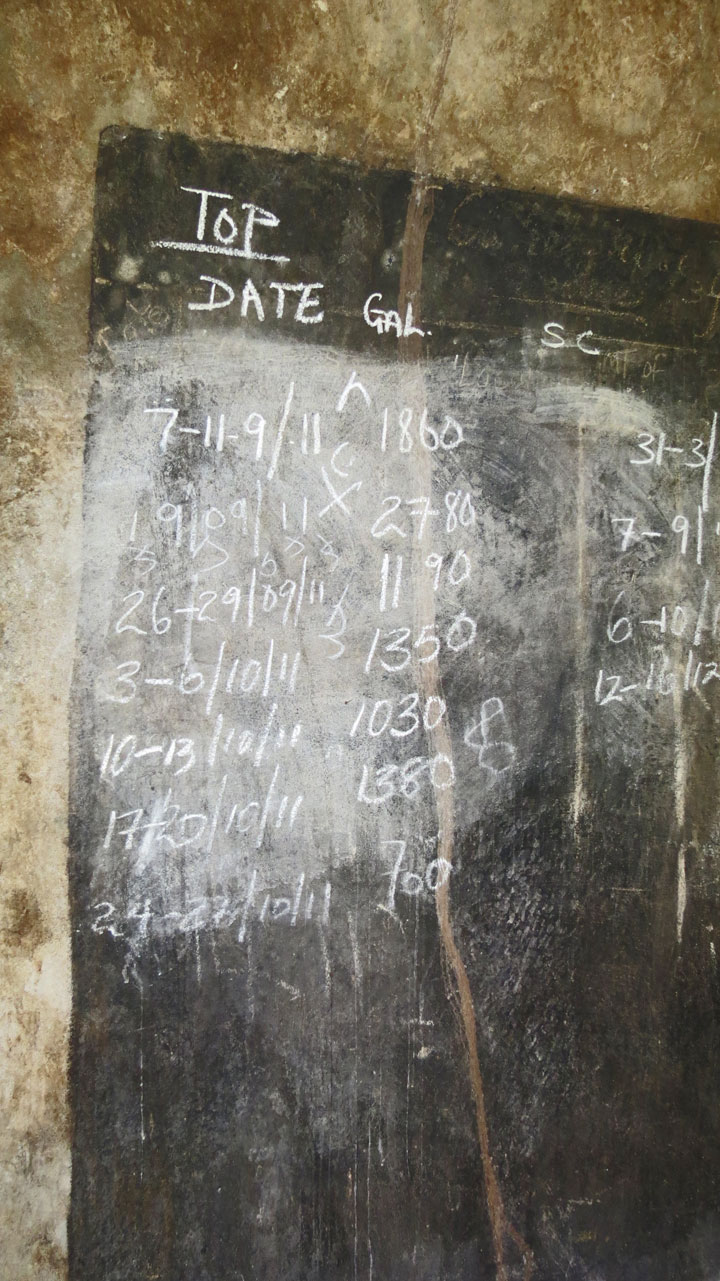 TOP
DATE GAL. SC
7-11-9/11 1860 31-3/
19/09/11 2780 7-9/
26-29/09/11 1190 6-10/
3-6/10/11 1350 12-16/12
10-13/10/11 1030
17-20/10/11 1380
24-27/10/11 700